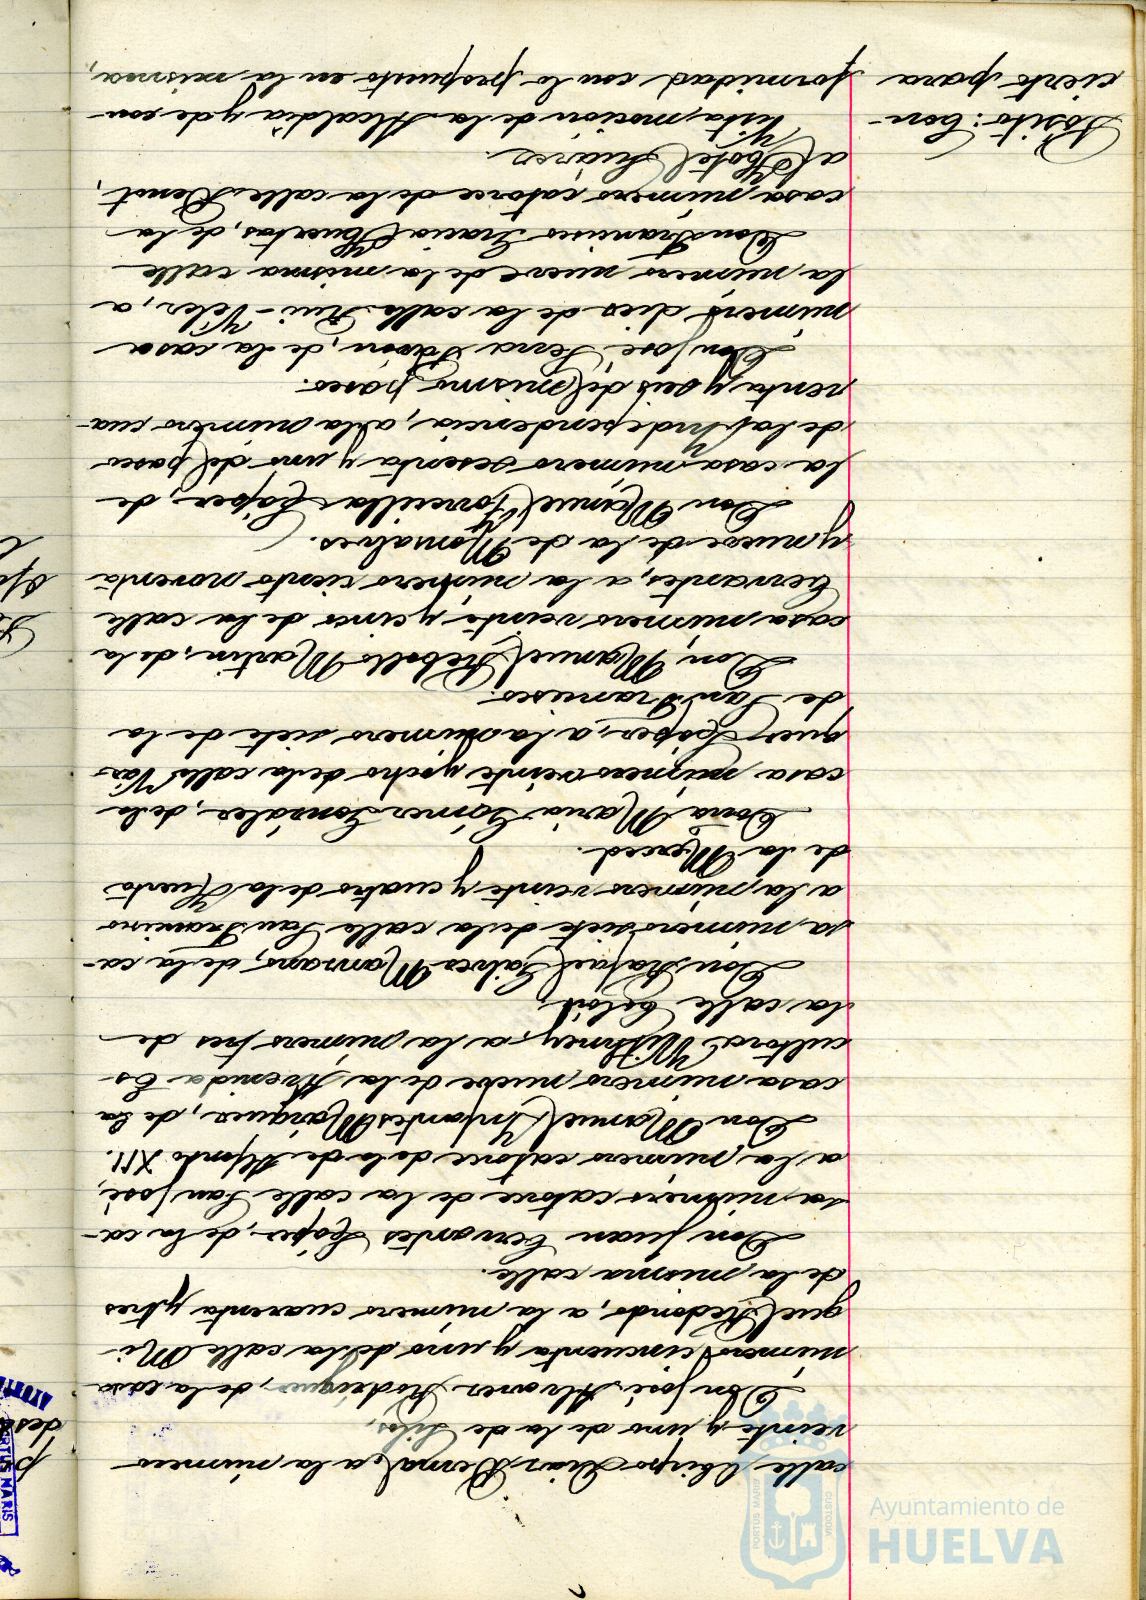 calle Obispo Díaz Bernal, a la número
veinte y uno de la de Silos,
Don José Alvarez Rodríguez, de la casa
número cincuenta y uno de la calle Mi-
guel Redondo, a la número cuarenta y tres
de la misma calle.
Don Juan Cervantes López, de la ca-
sa número catorce de la calle San José,
a la número catorce de la de Alfonso XII.
Don Manuel Infantes Márquez, de la
casa número nueve de la Avenida Es-
cultora Withney, a la número tres de
la calle
Don Rafael Galves Manzano, de la ca-
sa número siete de la calle San Francisco
a la número veinte y cuatro de la Huerta
de la Merced.
Doña María Gómez González, de la
casa número veinte y ocho de la calle Vas-
quez López, a la número siete de la
de San Francisco.
Don Manuel Rebollo Martín, de la
casa número veinte y cinco de la calle
Cervantes, a la número ciento noventa
y nueve de la de
Don Manuel Toscilla López, de
la casa número sesenta y uno del paseo
de la Independencia, a la número cua-
renta y seis del mismo paseo.
Don José Serra de la casa
número diez de la calle Rui-Velez, a
la número nueve de la misma calle
Don Francisco Gracia Huertas, de la
casa número catorce de la calle
al Hotel Suárez.
Pósito: Con-
cierto para
Vista, moción de la Alcaldía y de con-
formidad con lo propuesto en la misma,
Ayuntamiento de
HUELVA
PORTUS MARIS
CUSTODIA